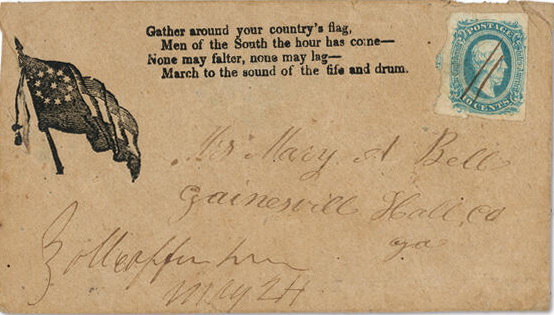 Gather around your country's flag,
Men of the South the hour has come—
None may falter, none may lag—
March to the sound of the fife and drum.
POSTAGE
10 CENTS
Mrs Mary A Bell
Gainesvill Hall, Co
ga
May 24